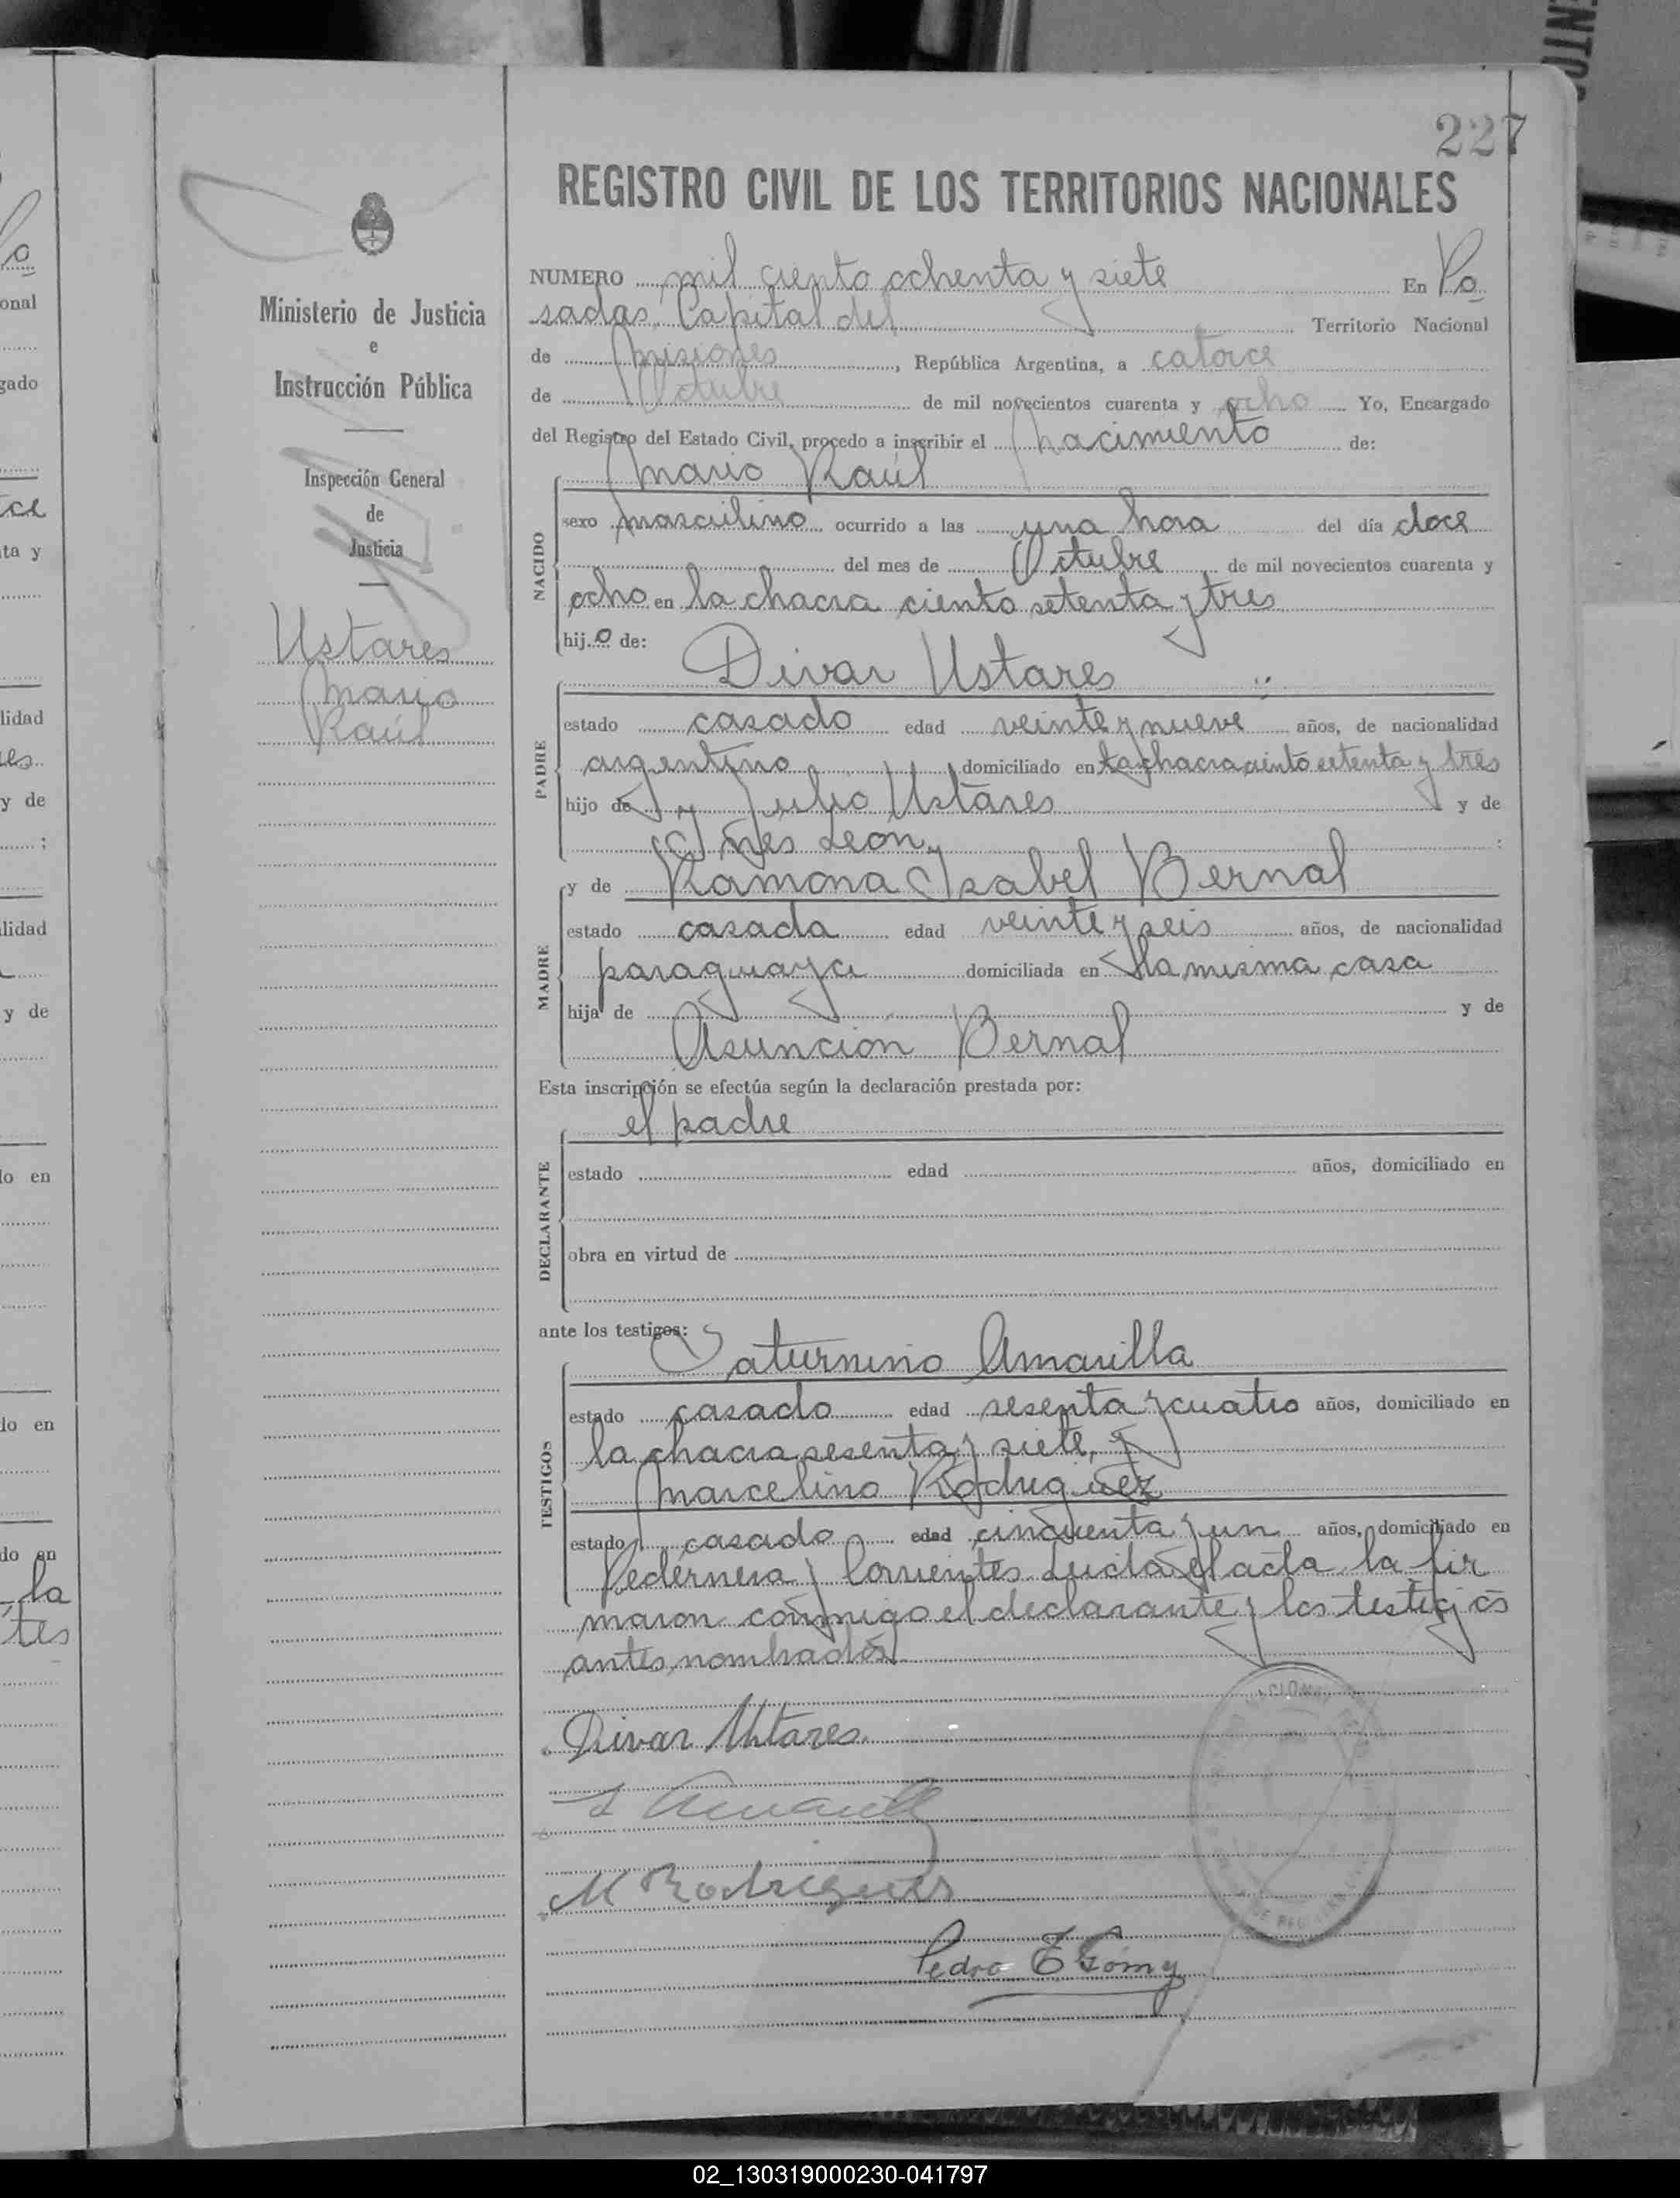 227
REGISTRO CIVIL DE LOS TERRITORIOS NACIONALES
NUMERO mil ciento ochenta y siete En Po
sadas, Capital del Territorio Nacional
de Misiones, República Argentina, a catorce
de Octubre de mil novecientos cuarenta y ocho Yo, Encargado
del Registro del Estado Civil, procedo a inscribir el nacimiento de:
Mario Raúl
NACIDO
sexo masculino ocurrido a las una hora del día doce
del mes de Octubre de mil novecientos cuarenta y
ocho en la chacra ciento setenta y tres
hijo de:
Divar Ustares
PADRE
estado casado edad veinte y nueve años, de nacionalidad
argentino domiciliado en la chacra ciento setenta y tres
hijo de Julio Ustares y de
Inés León, :
y de Ramona Isabel Bernal
MADRE
estado casada edad veinte y seis años, de nacionalidad
paraguaya domiciliada en la misma casa
hija de y de
Asunción Bernal
Esta inscripción se efectúa según la declaración prestada por:
el padre
DECLARANTE
estado edad años, domiciliado en
obra en virtud de
ante los testigos:
Saturnino Amarilla
TESTIGOS
estado casado edad sesenta y cuatro años, domiciliado en
la chacra sesenta y siete, y
Marcelino Rodriguez
estado casado edad cincuenta y un años, domiciliado en
Pedernera y Corrientes. Leida el acta la fir
maron conmigo el declarante y los testigos
antes nombrados
Divar Ustares
S Amarilla
M Rodriguez
Pedro E Gomy
Ministerio de Justicia
e
Instrucción Pública
Inspección General
de
Justicia
Ustares
Mario
Raúl
02_130319000230-041797